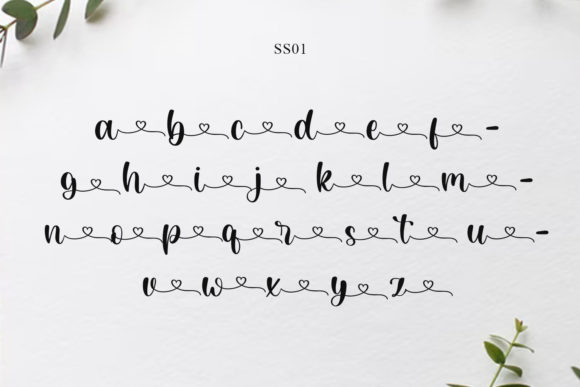 SS01
a b c d e f -
g h i j k l m -
n o p q r s t u -
v w x y z